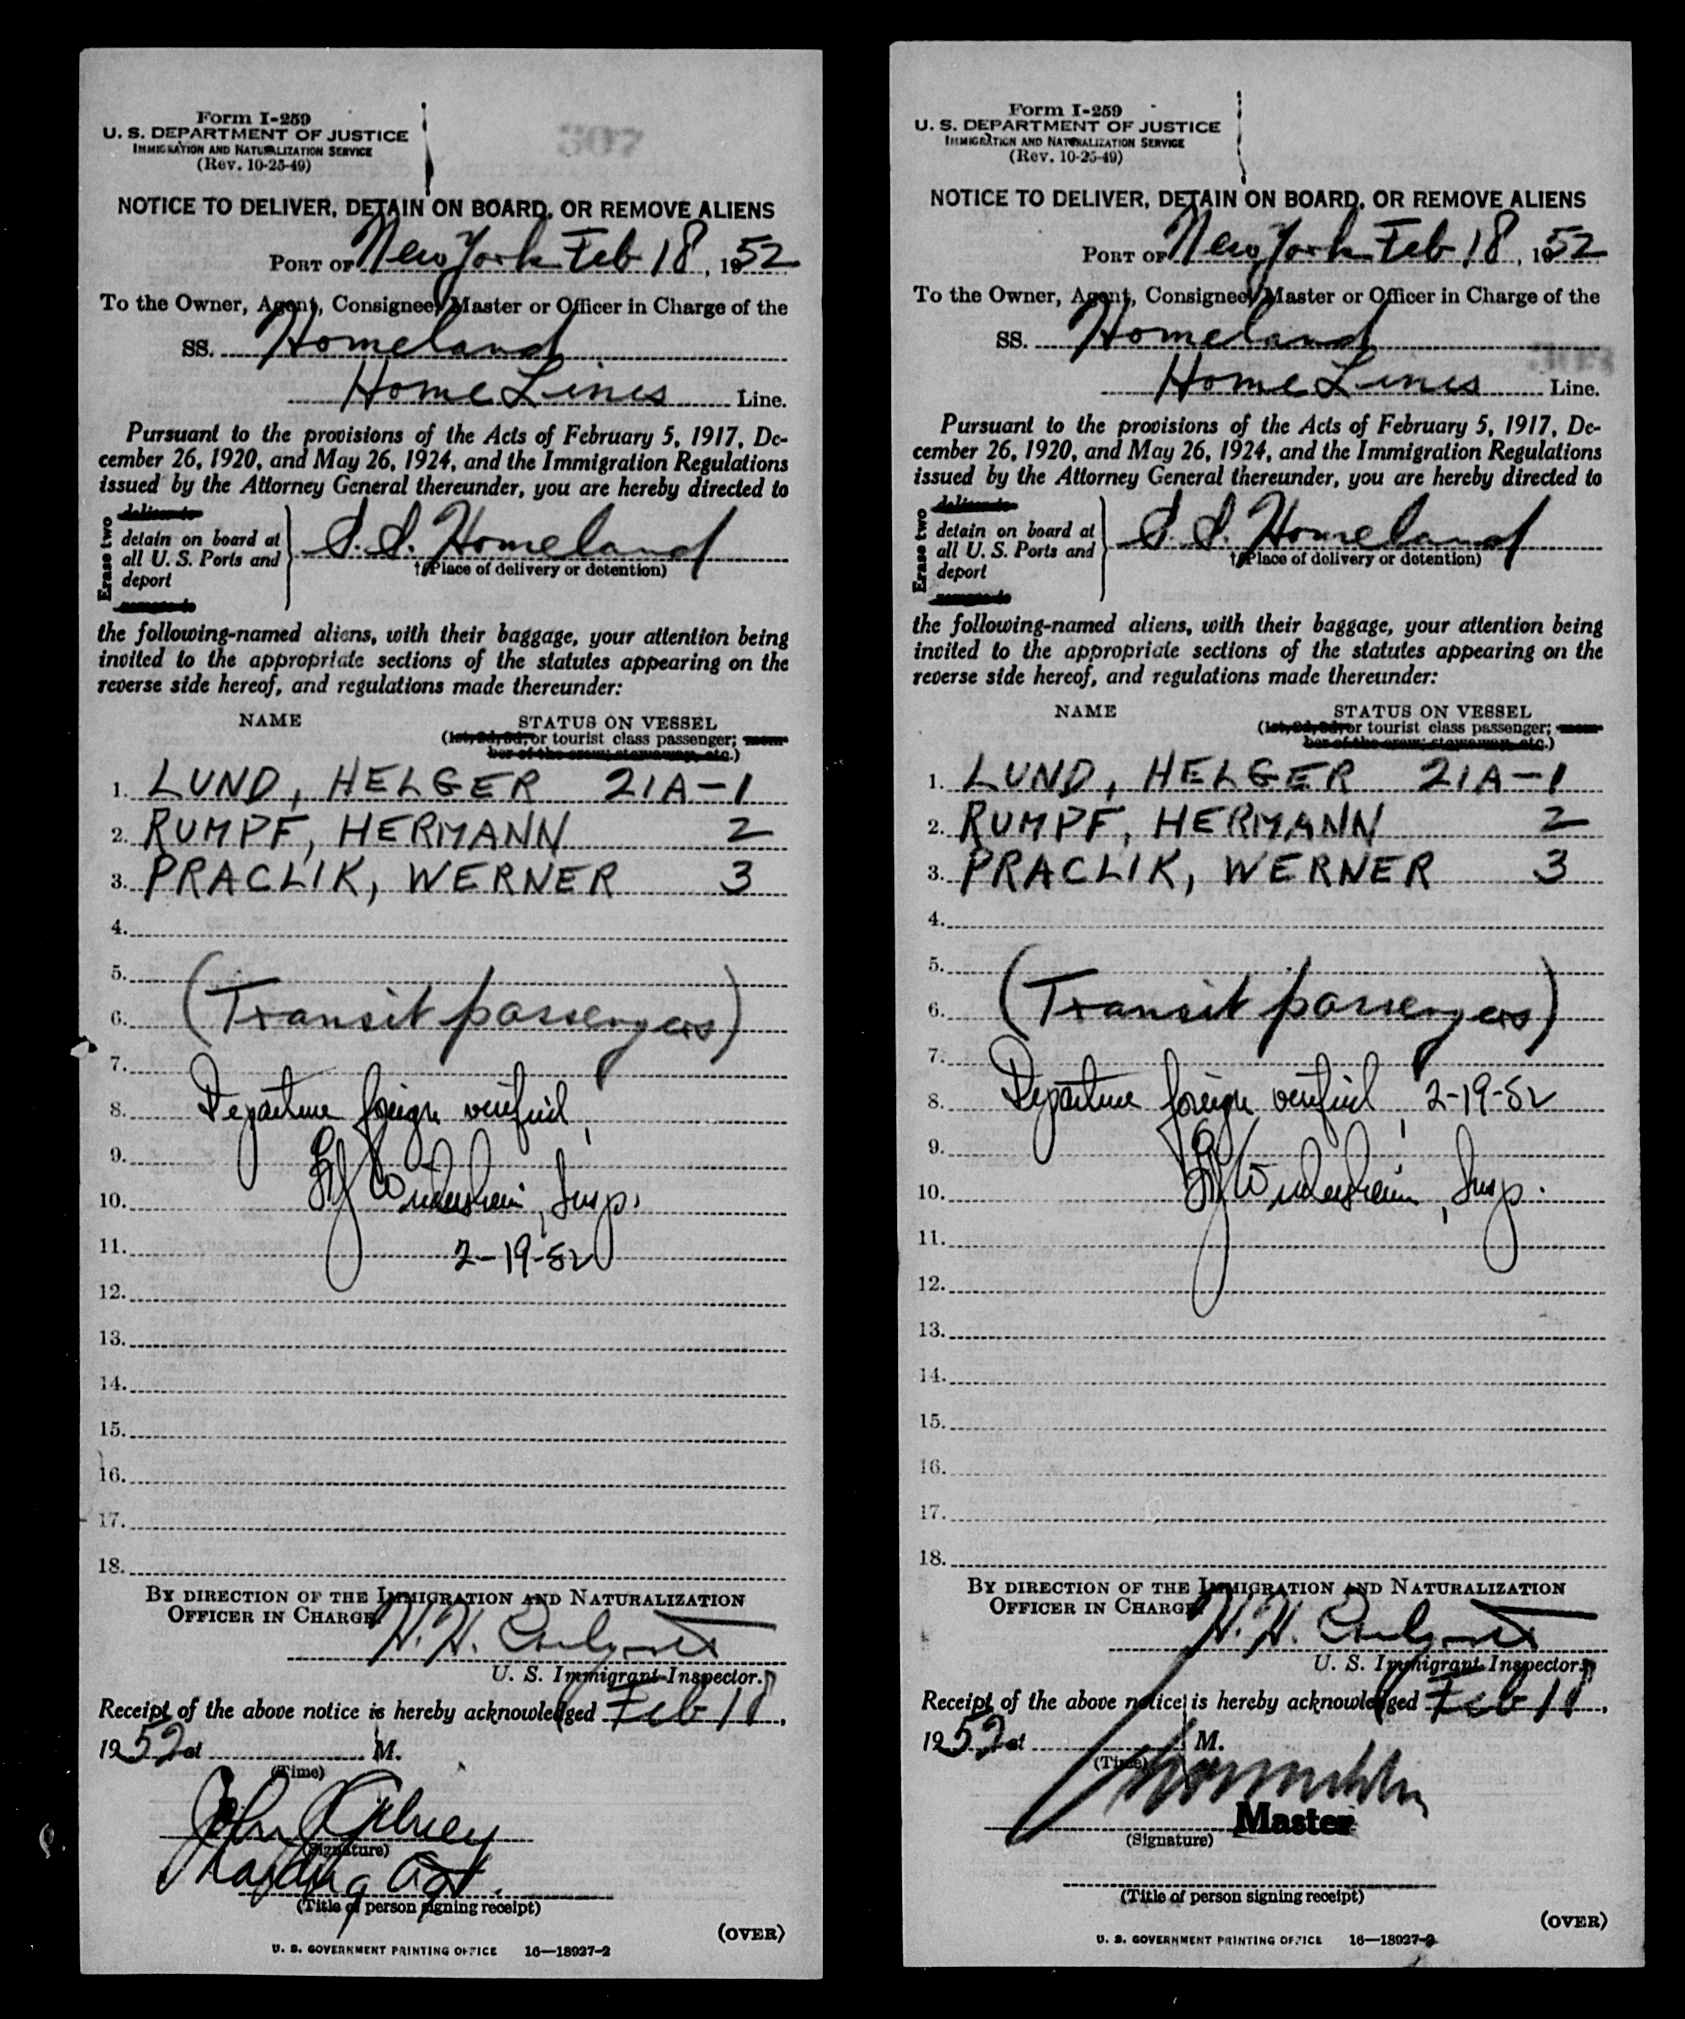 507
Form I-259
U. S. DEPARTMENT OF JUSTICE
IMMIGRATION AND NATURALIZATION SERVICE
(Rev. 10-25-49)
NOTICE TO DELIVER, DETAIN ON BOARD, OR REMOVE ALIENS
PORT OF New York Feb 18, 1952
To the Owner, Agent, Consignee, Master or Officer in Charge of the
SS. Homeland
Home Lines Line.
Pursuant to the provisions of the Acts of February 5, 1917, De-
cember 26, 1920, and May 26, 1924, and the Immigration Regulations
issued by the Attorney General thereunder, you are hereby directed to
Erase two
deliver to
detain on board at
all U. S. Ports and
deport
remove to
S.S. Homeland
†(Place of delivery or detention)
the following-named aliens, with their baggage, your attention being
invited to the appropriate sections of the statutes appearing on the
reverse side hereof, and regulations made thereunder:
NAME STATUS ON VESSEL
(1st, 2d, 3d, or tourist class passenger; mem-
ber of the crew; stowaway, etc.)
1. LUND, HELGER 21A-1
2. RUMPF, HERMANN 2
3. PRACLIK, WERNER 3
4.
5.
6. (Transit passengers)
7.
8. Departure foreign verified,
9.
10. Insp.
11. 2-19-52
12.
13.
14.
15.
16.
17.
18.
BY DIRECTION OF THE IMMIGRATION AND NATURALIZATION
OFFICER IN CHARGE.
H. H.
U. S. Immigrant Inspector.
Receipt of the above notice is hereby acknowledged Feb 18,
1952 at M.
(Time)
John
(Signature)
Agt.
(Title of person signing receipt)
(OVER)
U. S. GOVERNMENT PRINTING OFFICE 16—18927-2
Form I-259
U. S. DEPARTMENT OF JUSTICE
IMMIGRATION AND NATURALIZATION SERVICE
(Rev. 10-25-49)
NOTICE TO DELIVER, DETAIN ON BOARD, OR REMOVE ALIENS
PORT OF New York Feb 18, 1952
To the Owner, Agent, Consignee, Master or Officer in Charge of the
SS. Homeland
Home Lines Line.
Pursuant to the provisions of the Acts of February 5, 1917, De-
cember 26, 1920, and May 26, 1924, and the Immigration Regulations
issued by the Attorney General thereunder, you are hereby directed to
Erase two
deliver to
detain on board at
all U. S. Ports and
deport
remove to
S.S. Homeland
†(Place of delivery or detention)
the following-named aliens, with their baggage, your attention being
invited to the appropriate sections of the statutes appearing on the
reverse side hereof, and regulations made thereunder:
NAME STATUS ON VESSEL
(1st, 2d, 3d, or tourist class passenger; mem-
ber of the crew; stowaway, etc.)
1. LUND, HELGER 21A-1
2. RUMPF, HERMANN 2
3. PRACLIK, WERNER 3
4.
5.
6. (Transit passengers)
7.
8. Departure foreign verified, 2-19-52
9.
10. Insp.
11.
12.
13.
14.
15.
16.
17.
18.
BY DIRECTION OF THE IMMIGRATION AND NATURALIZATION
OFFICER IN CHARGE.
H. H.
U. S. Immigrant Inspector.
Receipt of the above notice is hereby acknowledged Feb 18,
1952 at M.
(Time)
Master
(Signature)
(Title of person signing receipt)
(OVER)
U. S. GOVERNMENT PRINTING OFFICE 16—18927-2